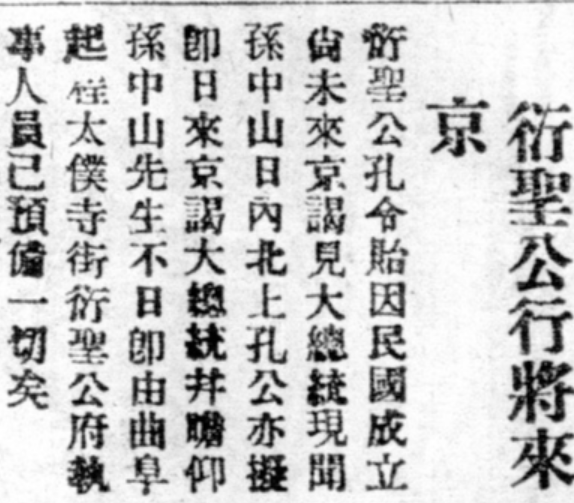 衍聖公行將來
京
衍聖公孔令貽因民國成立
尙未來京謁見大總統現聞
孫中山日內北上孔公亦擬
卽日來京謁大總統幷瞻仰
孫中山先生不日卽由曲阜
起程太僕寺街衍聖公府執
事人員已預備一切矣